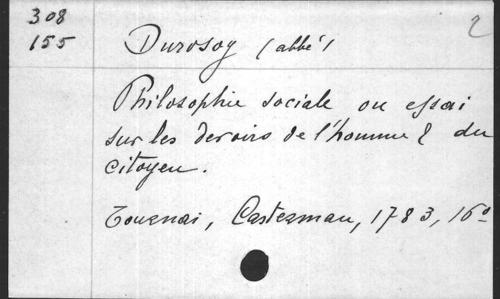 308
155
2
Durosoy (abbé)
Philosophie sociale ou essai
sur les devoirs de l'homme & du
citoyen.
Tournai, Casterman, 1783, 16º